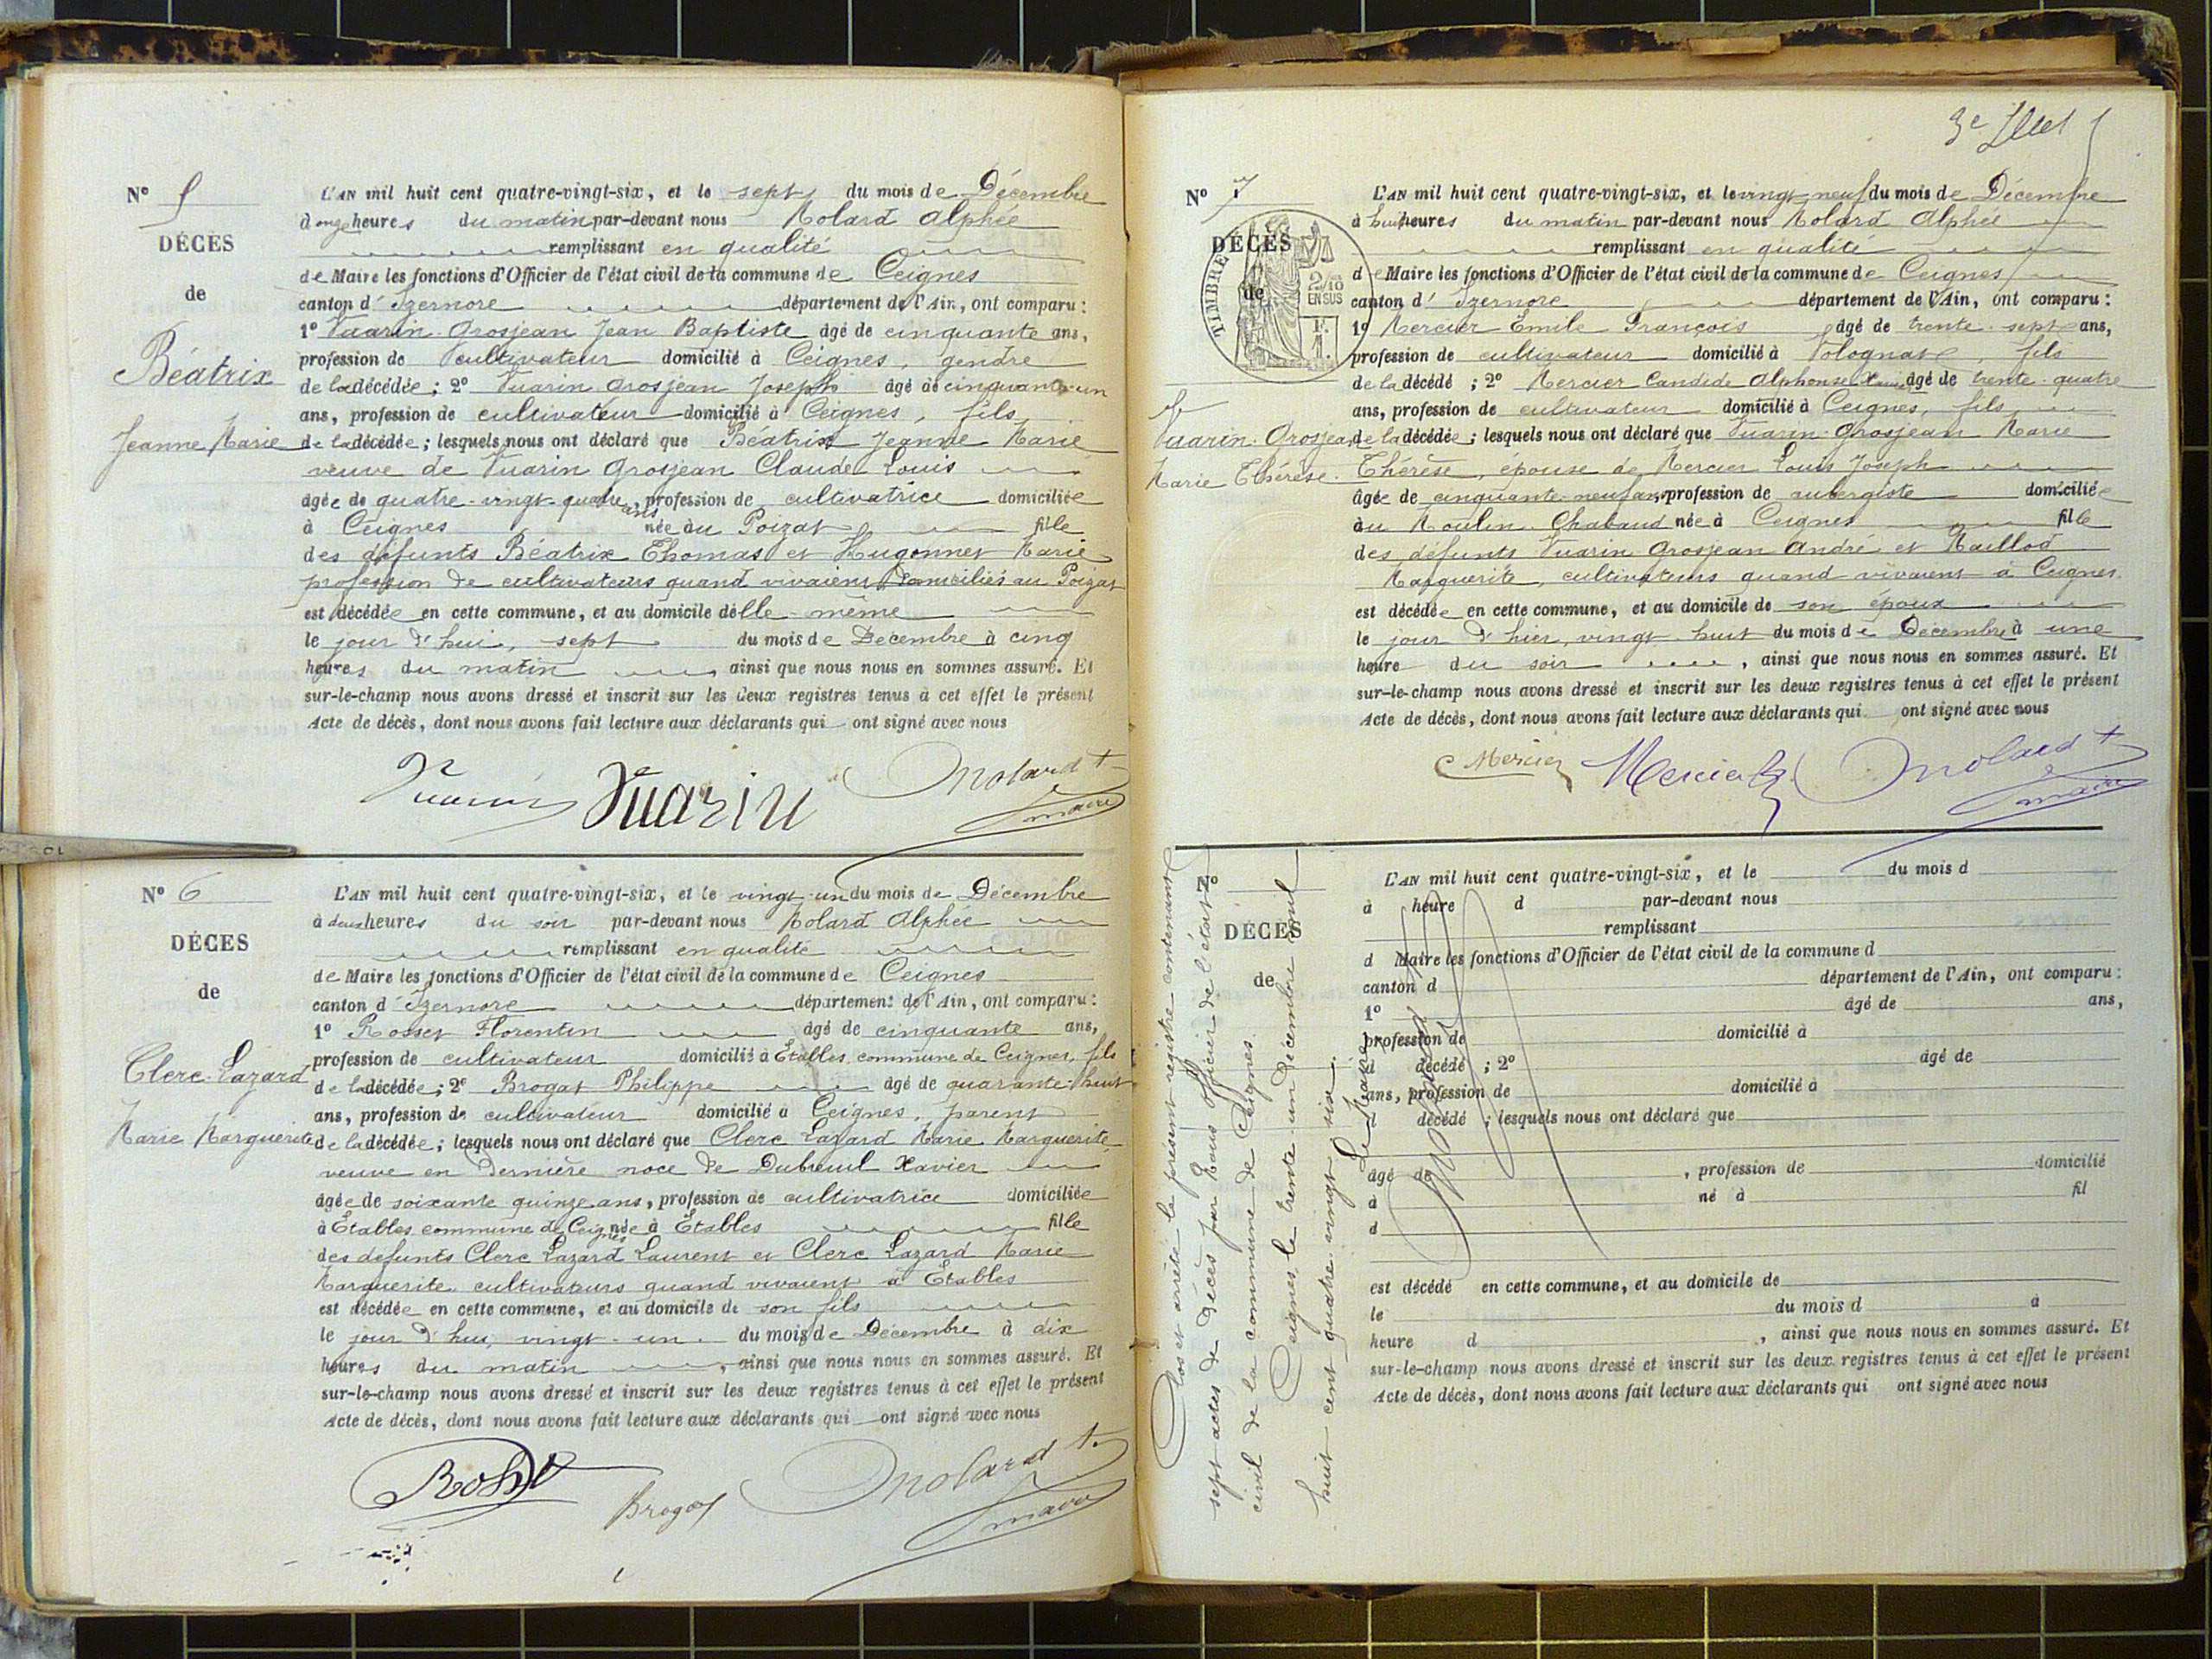 N° 5
DÉCÈS
de
Béatrix
Jeanne Marie
L'AN mil huit cent quatre-vingt-six, et le sept du mois de Décembre
à onze heures du matin par-devant nous Molard Alphée
remplissant en qualité
de Maire les fonctions d'Officier de l'état civil de la commune de Ceignes
canton d'Izernore département de l'Ain, ont comparu :
1° Vuarin Grosjean Jean Baptiste âgé de cinquante ans,
profession de cultivateur domicilié à Ceignes, gendre
de la décédée ; 2° Vuarin Grosjean Joseph âgé de cinquante-un
ans, profession de cultivateur domicilié à Ceignes, fils
de la décédée ; lesquels nous ont déclaré que Béatrix Jeanne Marie
veuve de Vuarin Grosjean Claude Louis
âgée de quatre-vingt-quatre ans, profession de cultivatrice domiciliée
à Ceignes née au Poizat fille
des défunts Béatrix Thomas et Hugonnet Marie
profession de cultivateurs quand vivaient domiciliés au Poizat
est décédée en cette commune, et au domicile d'elle-même
le jour d'hui, sept du mois de Décembre à cinq
heures du matin, ainsi que nous nous en sommes assuré. Et
sur-le-champ nous avons dressé et inscrit sur les deux registres tenus à cet effet le présent
Acte de décès, dont nous avons fait lecture aux déclarants qui ont signé avec nous
Vuarin Vuarin Molard
maire
N° 6
DÉCÈS
de
Clerc-Lazard
Marie Marguerite
L'AN mil huit cent quatre-vingt-six, et le vingt-un du mois de Décembre
à deux heures du soir par-devant nous Molard Alphée
remplissant en qualité
de Maire les fonctions d'Officier de l'état civil de la commune de Ceignes
canton d'Izernore département de l'Ain, ont comparu :
1° Rosset Florentin âgé de cinquante ans,
profession de cultivateur domicilié à Étables, commune de Ceignes, fils
de la décédée ; 2° Brogat Philippe âgé de quarante-huit
ans, profession de cultivateur domicilié à Ceignes, parent
de la décédée ; lesquels nous ont déclaré que Clerc Lazard Marie Marguerite,
veuve en dernière noce de Dubreuil Xavier
âgée de soixante quinze ans, profession de cultivatrice domiciliée
à Étables commune de Ceignes née à Étables fille
des défunts Clerc Lazard Laurent et Clerc Lazard Marie
Marguerite cultivateurs quand vivaient à Étables
est décédée en cette commune, et au domicile de son fils
le jour d'hui, vingt-un du mois de Décembre à dix
heures du matin, ainsi que nous nous en sommes assuré. Et
sur-le-champ nous avons dressé et inscrit sur les deux registres tenus à cet effet le présent
Acte de décès, dont nous avons fait lecture aux déclarants qui ont signé avec nous
Rosset Brogat Molard
maire
N° 7
DÉCÈS
de
TIMBRE
2/10
EN SUS
Vuarin-Grosjean
Marie Thérèse.
L'AN mil huit cent quatre-vingt-six, et le vingt-neuf du mois de Décembre
à huit heures du matin par-devant nous Molard Alphée
remplissant en qualité
de Maire les fonctions d'Officier de l'état civil de la commune de Ceignes
canton d'Izernore département de l'Ain, ont comparu :
1° Mercier Émile François âgé de trente-sept ans,
profession de cultivateur domicilié à Volognat, fils
de la décédé ; 2° Mercier Candide Alphonse Xavier âgé de trente-quatre
ans, profession de cultivateur domicilié à Ceignes, fils
de la décédée ; lesquels nous ont déclaré que Vuarin-Grosjean Marie
Thérèse, épouse de Mercier Louis Joseph
âgée de cinquante-neuf ans, profession de aubergiste domiciliée
au Moulin Chabaud née à Ceignes fille
des défunts Vuarin Grosjean André et Maillod
Marguerite, cultivateurs quand vivaient à Ceignes
est décédée en cette commune, et au domicile de son époux
le jour d'hier, vingt-huit du mois de Décembre à une
heure du soir, ainsi que nous nous en sommes assuré. Et
sur-le-champ nous avons dressé et inscrit sur les deux registres tenus à cet effet le présent
Acte de décès, dont nous avons fait lecture aux déclarants qui ont signé avec nous
C Mercier Mercier Molard
maire
Clos et arrêté le présent registre contenant
sept actes de décès par Nous Officier de l'état
civil de la commune de Ceignes.
Ceignes, le trente-un Décembre mil
huit cent quatre-vingt-six.
Le Maire,
Molard
N°
DÉCÈS
de
L'AN mil huit cent quatre-vingt-six, et le du mois d
à heure d par-devant nous
remplissant
d Maire les fonctions d'Officier de l'état civil de la commune d
canton d département de l'Ain, ont comparu :
1° âgé de ans,
profession de domicilié à
d décédé ; 2° âgé de
ans, profession de domicilié à
d décédé ; lesquels nous ont déclaré que
âgé de , profession de domicilié
à né à fil
d
est décédé en cette commune, et au domicile de
le du mois d à
heure d , ainsi que nous nous en sommes assuré. Et
sur-le-champ nous avons dressé et inscrit sur les deux registres tenus à cet effet le présent
Acte de décès, dont nous avons fait lecture aux déclarants qui ont signé avec nous